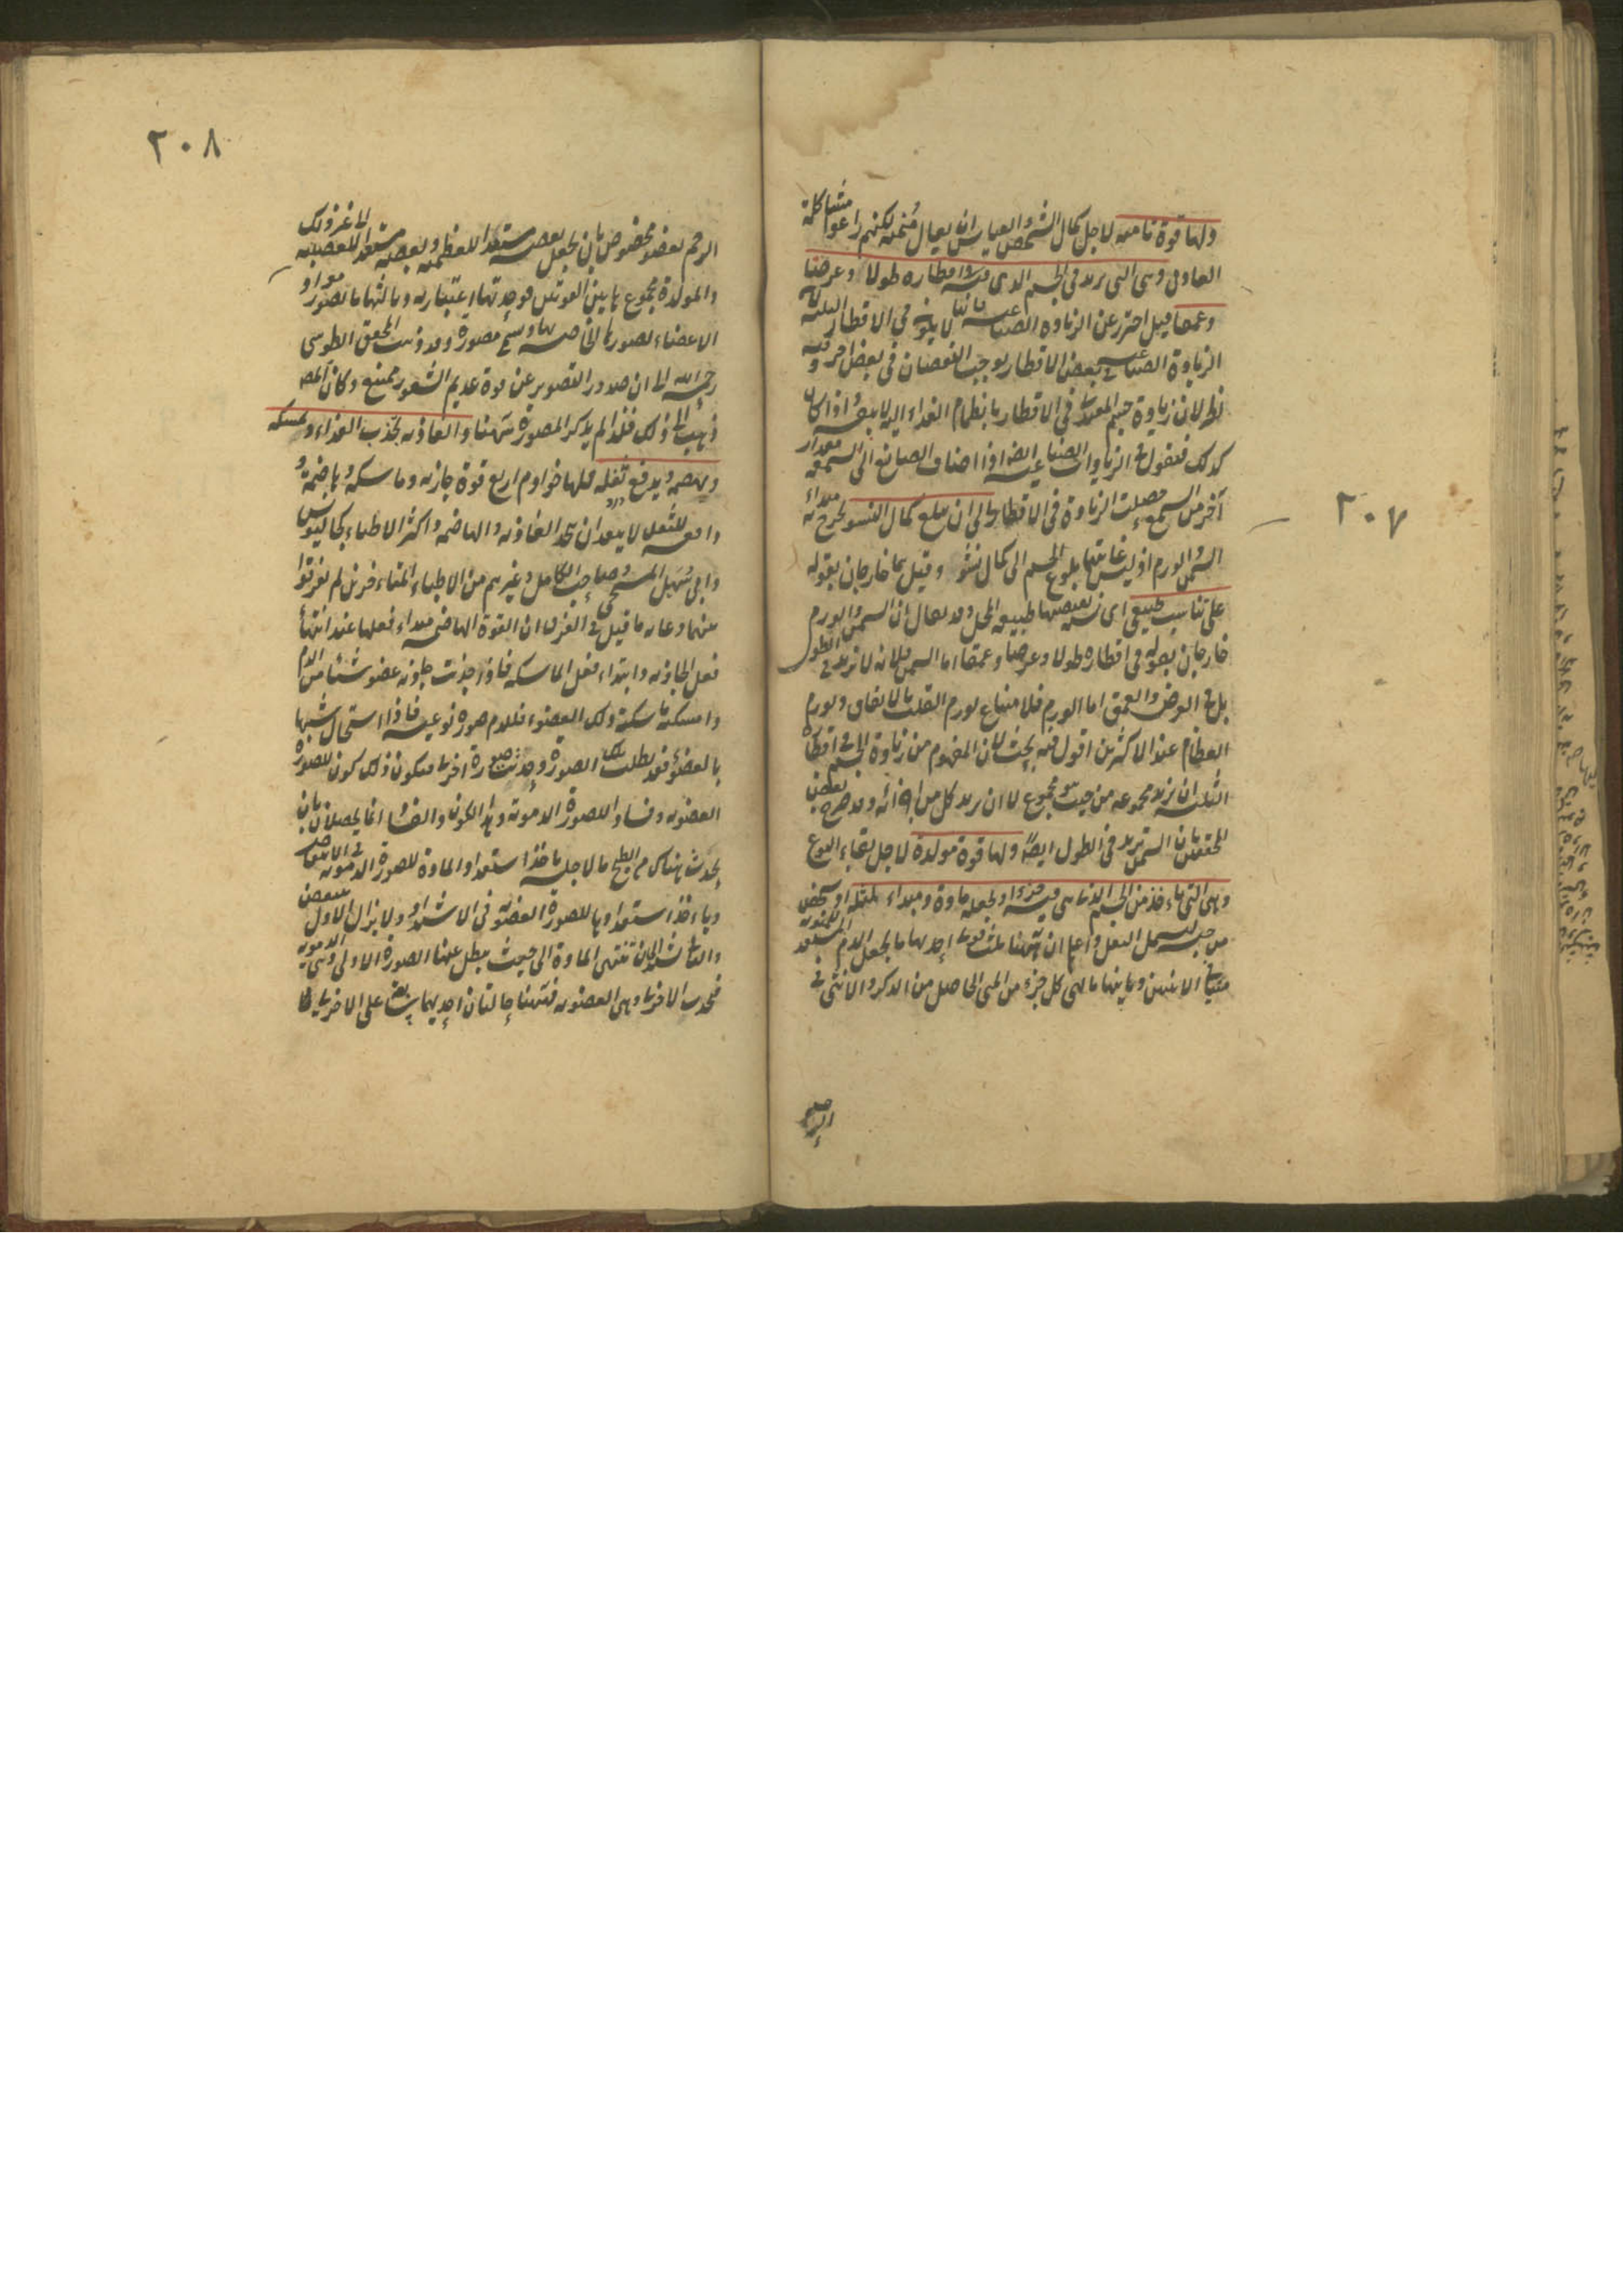 ٢٠٧
ولها قوة نامية لاجل كمال الشخص والقياس ان يقال منمية لكنهم راعوا مشاكلة
الغاذية وهي التي تزيد في الجسم الذي هي فيه اقطاره طولا وعرضا
وعمقا قيل احترز عن الزيادة الصناعية فانها لا يكون في الاقطار الثلثة لان
الزيادة الصناعية في بعض الاقطار يوجب النقصان في بعض آخر وفيه
نظر لان زيادة جسم المغتذي في الاقطار بانضمام الغذاء اليه لا بنفسه واذا كان
كذلك فنقول في الزيادات الصناعية ايضا اذا اضاف الصانع الى الشمعة مقدار
آخر من الشمع حصلت الزيادة في الاقطار الى ان يبلغ كمال النشو يخرج مبدأ
السمن والورم اذ ليس غايتها بلوغ الجسم الى كمال نشو وقيل هما خارجان بقوله
على تناسب طبيعي اي نسبة يقتضيها طبيعة المحل وقد يقال ان السمن والورم
خارجان بقوله في اقطاره طولا وعرضا وعمقا اما السمن فلانه لا يزيد في الطول
بل في العرض والعمق اما الورم فلامتناع تورم القلب بالاتفاق وتورم
العظام عند الاكثرين اقول فيه بحث لان المفهوم من زيادة الجسم في اقطاره
الثلثة ان يزيد مجموعه من حيث هو مجموع لا ان يزيد كل من اجزائه وقد صرح بعض
المحققين بان السمن يزيد في الطول ايضا ولها قوة مولدة لاجل بقاء النوع
وهي التي تاخذ من الجسم الذي هي فيه جزءا وتجعله مادة ومبداء لمثله او شخص
من جنسه يشمل البغل واعلم ان ههنا ثلث قوى احديها ما يجعل الدم المستعد للمنوية
منيا في الانثيين وثانيتها ما يهيئ كل جزء من المني الحاصل من الذكر والانثى في
الرحم
٢٠٨
الرحم بعضو مخصوص بان يجعل بعضه مستعدا للعظمية وبعضه مستعدا للعصبية الى غير ذلك
والمولدة مجموع هاتين القوتين فوحدتها اعتبارية وثالثتها ما تصور مواد
الاعضاء بصورها الخاصة بها وتسمى مصورة وقد ذهب المحقق الطوسي
رحمه الله الى ان صدور التصوير عن قوة عديم الشعور ممتنع وكان المص
ذهب الى ذلك فلذا لم يذكر المصورة ههنا والغاذية تجذب الغذاء وتمسكه
وتهضمه وتدفع ثفله فلها خوادم اربع قوة جاذبة وماسكة وهاضمة و
دافعة للثفل لا يبعد ان تتحد الغاذية والهاضمة واكثر الاطباء كجالينوس
وابي سهل المسيحي وصاحب الكامل وغيرهم من الاطباء المتاخرين لم يفرقوا
بينهما وغاية ما قيل في الفرق ان القوة الهاضمة مبداء فعلها عند انتهاء
فعل الجاذبة وابتداء فعل الماسكة فاذا جذبت جاذبة عضو شيئا من الدم
وامسكته ماسكة ذلك العضو فللدم صورة نوعية فاذا استحال شبيها
بالعضو فقد بطلت تلك الصورة وحدثت صورة اخرى فيكون ذلك كون للصورة
العضوية وفسادا للصورة الدموية وهذا الكون والفساد انما يحصلان بان
يحدث هناك من الطبخ ما لاجله ياخذ استعداد المادة للصورة الدموية في الانتقاص
وياخذ استعدادها للصورة العضوية في الاشتداد ولا يزال الاول ينتقص
والثاني يشتد الى ان تنتهي المادة الى حيث يبطل عنها الصورة الاولى وهي الدموية
فيحدث الاخرى وهي العضوية فههنا حالتان احديهما سابقة على الاخرى